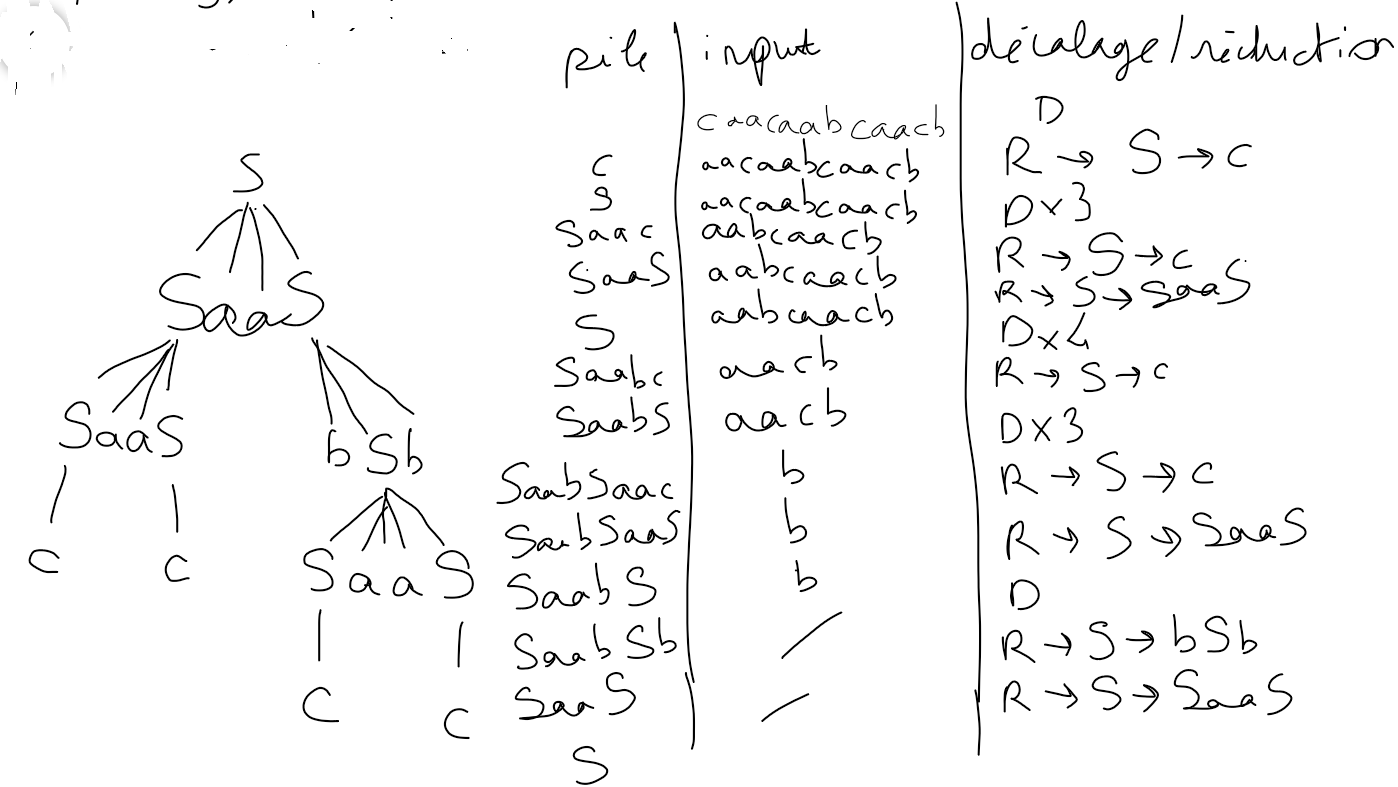 pile input décalage/réduction
caacaabcaacb D
c aacaabcaacb R → S → c
S aacaabcaacb D×3
Saac aabcaacb R → S → c
SaaS aabcaacb R → S → SaaS
S aabcaacb D×4
Saabc aacb R → S → c
SaabS aacb D×3
SaabSaac b R → S → c
SaabSaaS b R → S → SaaS
SaabS b D
SaabSb / R → S → bSb
SaaS / R → S → SaaS
S
S
SaaS
SaaS bSb
c c SaaS
c c